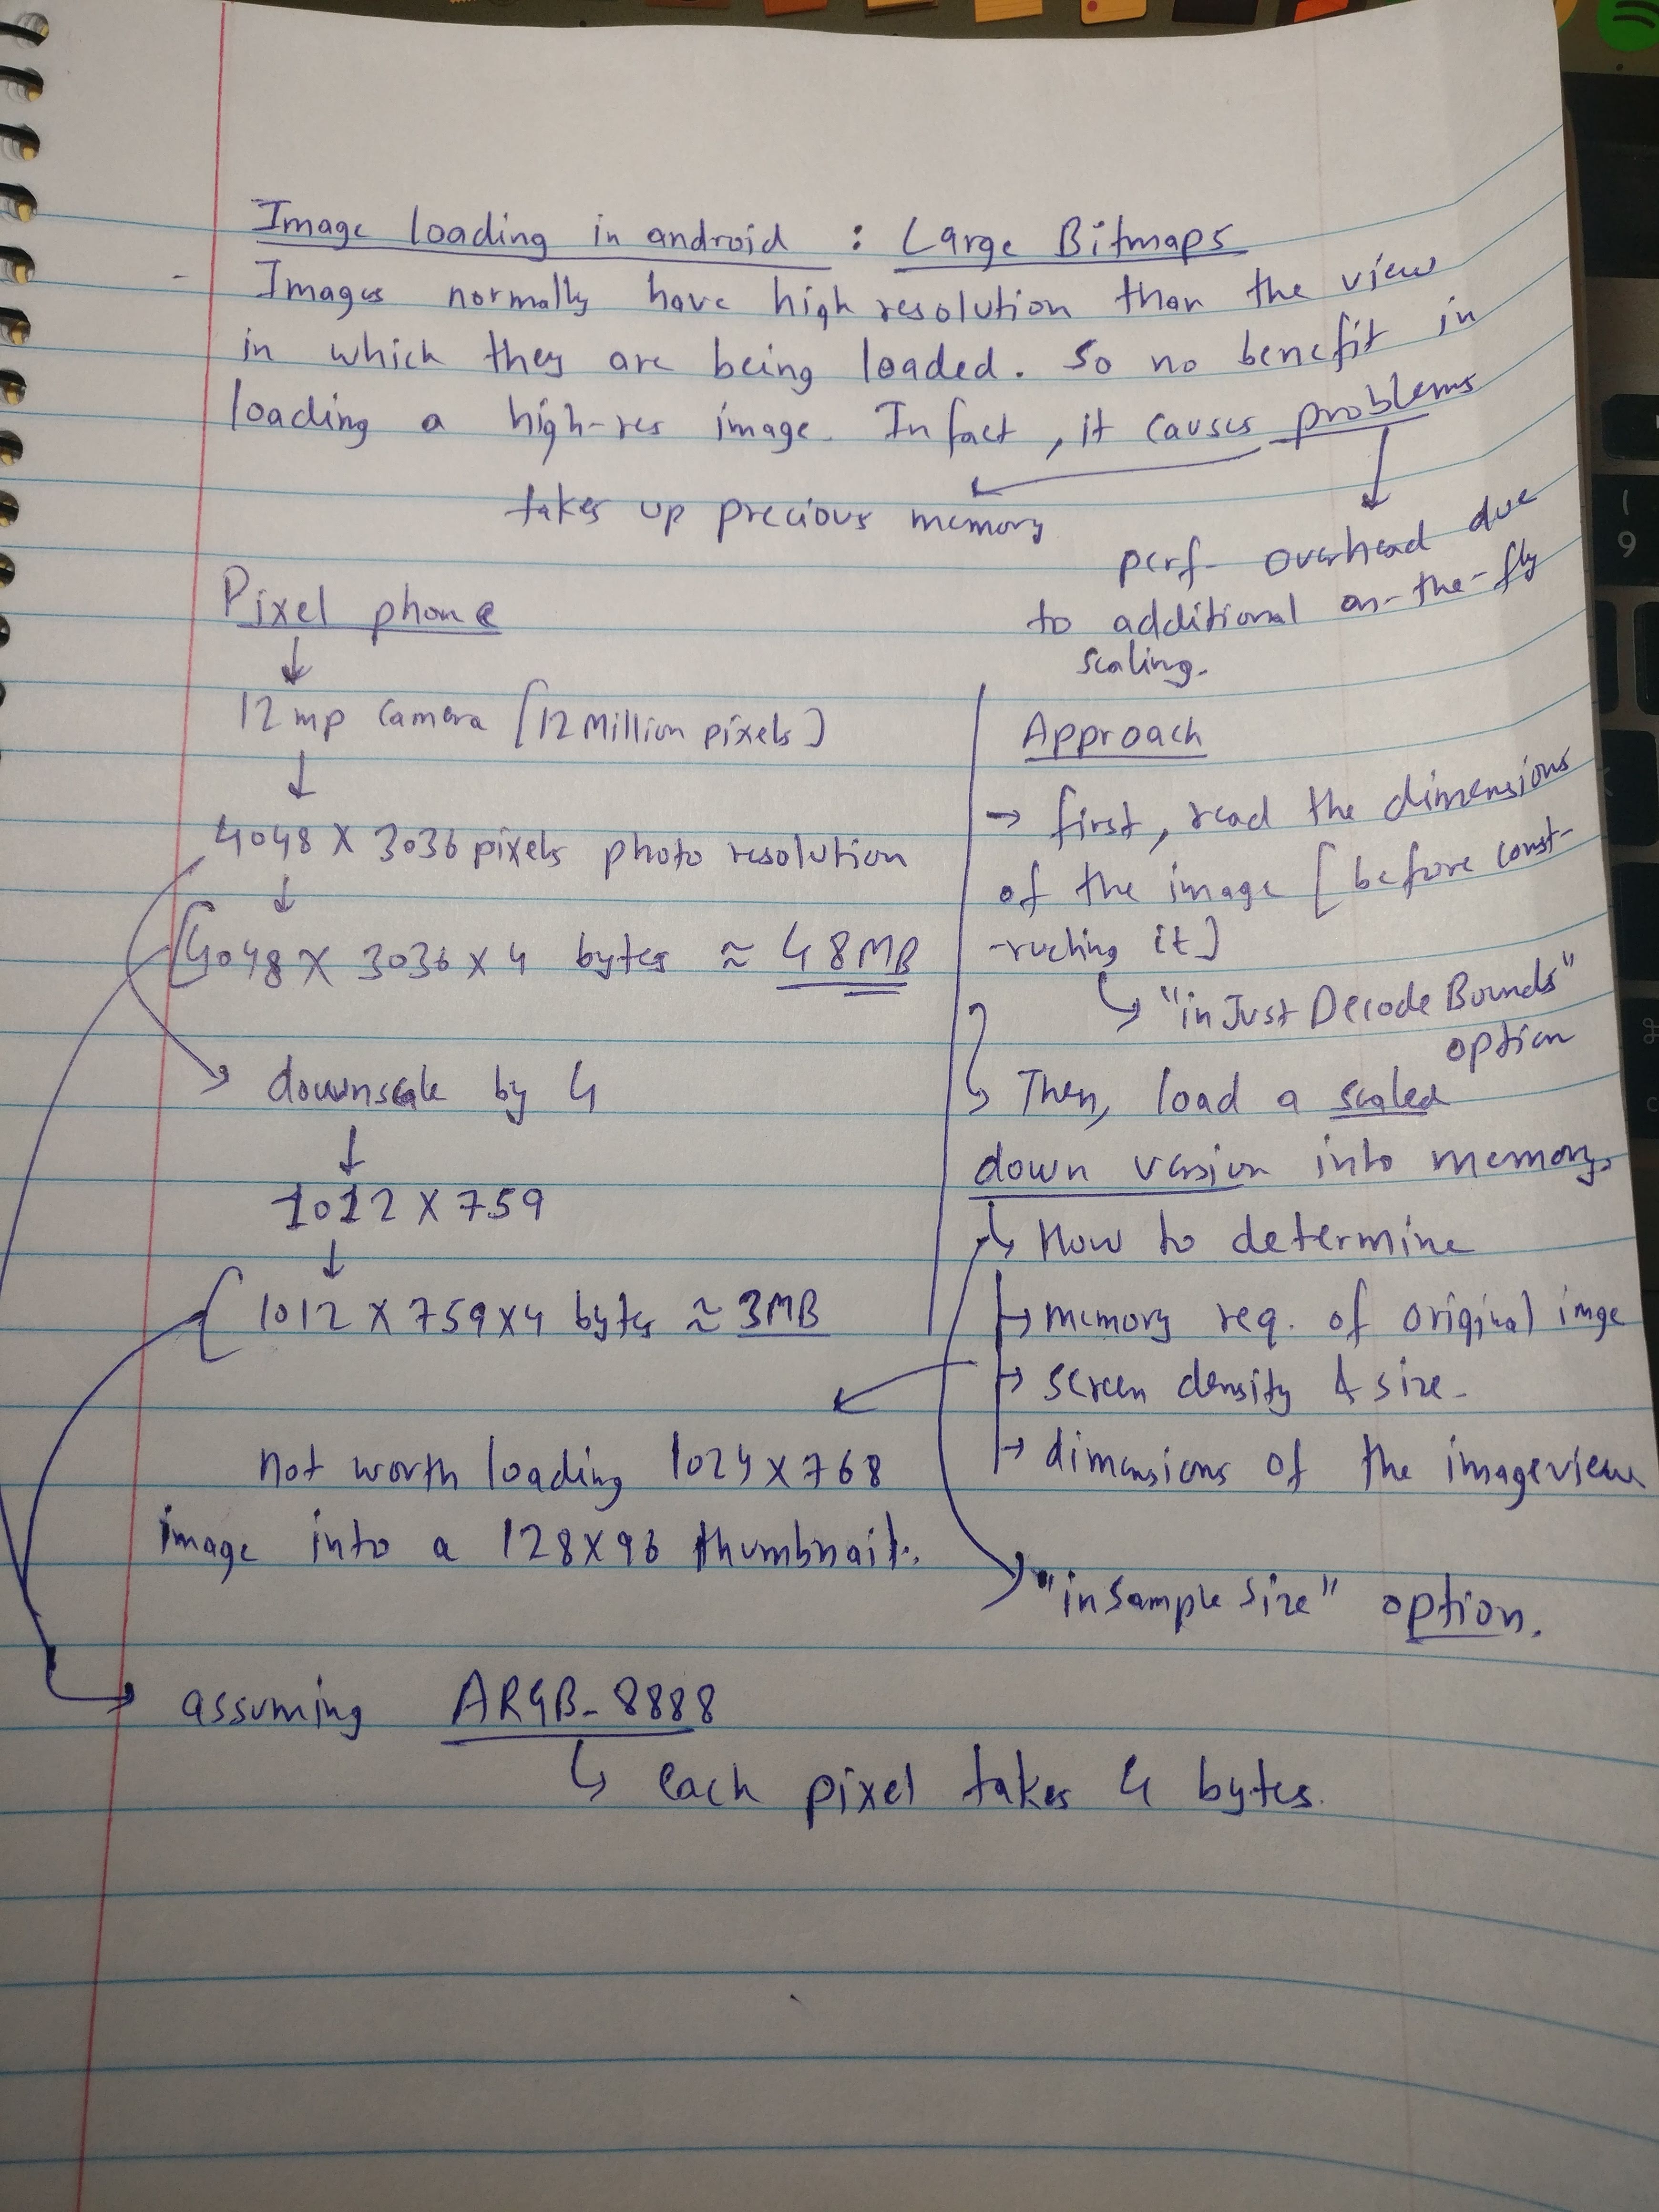 Image loading in android : Large Bitmaps
Images normally have high resolution than the view
in which they are being loaded. So no benefit in
loading a high-res image. In fact, it causes problems
takes up precious memory
perf- overhead due
to additional on-the-fly
scaling.
Pixel phone
12 mp camera [12 Million pixels]
4048 X 3036 pixels photo resolution
4048 X 3036 x 4 bytes ≈ 48MB
downscale by 4
1012 X 759
1012 X 759 x 4 bytes ≈ 3MB
not worth loading 1024 x 768
image into a 128 x 96 thumbnail.
Approach
→ first, read the dimensions
of the image [before const-
-ructing it]
"inJustDecodeBounds"
option
Then, load a scaled
down version into memory.
How to determine
memory req. of original imge
screen density & size-
dimensions of the imageview
"inSampleSize" option.
assuming ARGB_8888
each pixel takes 4 bytes.
9